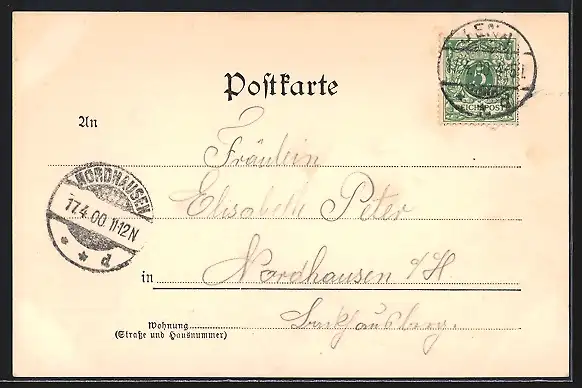 JENA
5
REICHSPOST
Postkarte
An
Fräulein
Elisabeth Peter
NORDHAUSEN
17.4.00.11-12N
* * d
in Nordhausen a/H.
Wohnung
(Straße und Hausnummer)